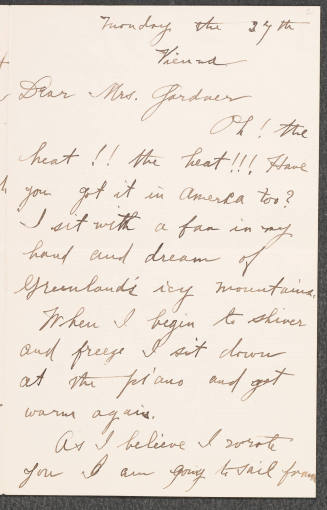 Monday the 27th
Vienna
Dear Mrs. Gardner
Oh! the
heat!! the heat!!! Have
you got it in America too?
I sit with a fan in my
hand and dream of
Greenland's icy mountains.
When I begin to shiver
and freeze I sit down
at the piano and get
warm again.
As I believe I wrote
you I am going to sail from